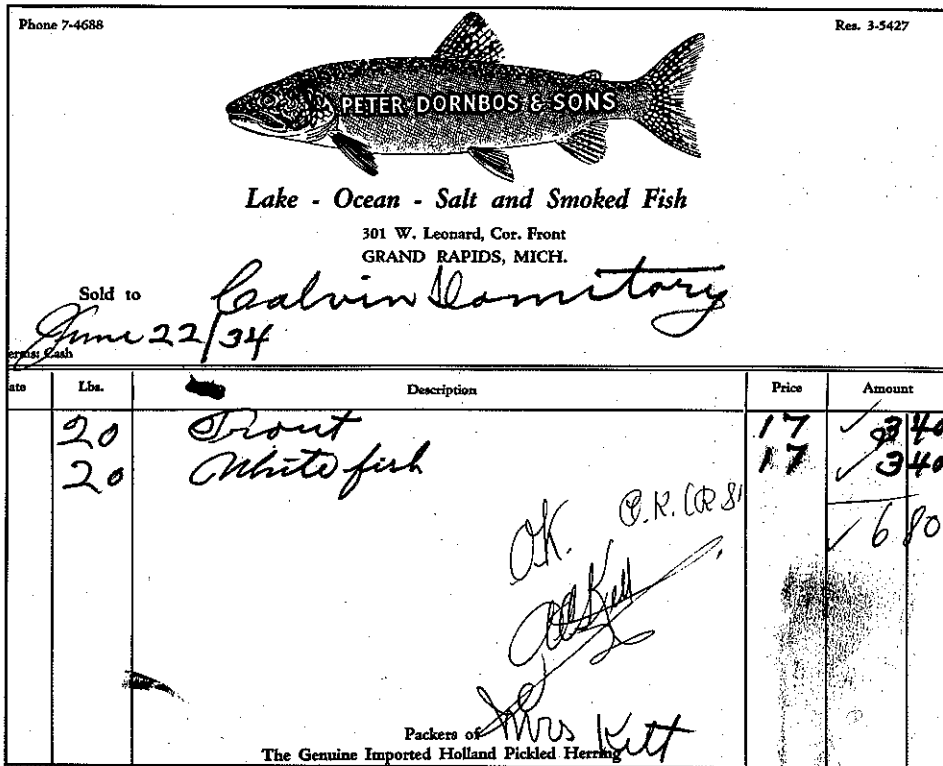 Phone 7-4688 Res. 3-5427
PETER DORNBOS & SONS
Lake - Ocean - Salt and Smoked Fish
301 W. Leonard, Cor. Front
GRAND RAPIDS, MICH.
Sold to Calvin Dormitory
June 22/34
erms: Cash
ate Lbs. Description Price Amount
20 Trout 17 3 40
20 White fish 17 3 40
6 80
O.K. O.K.
Mrs Kett
Packers of
The Genuine Imported Holland Pickled Herring